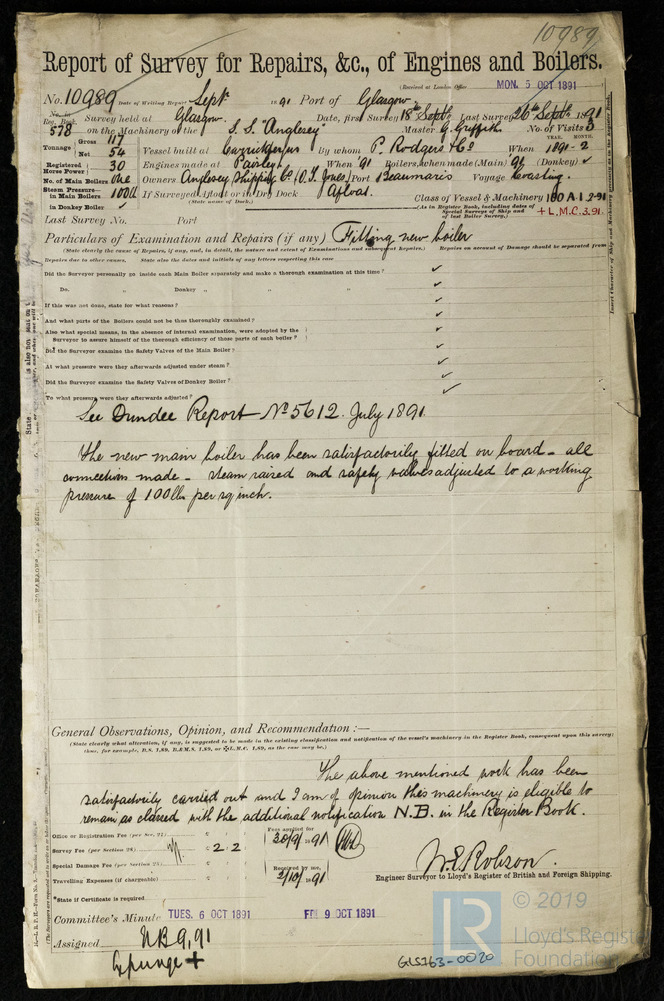 10989
Report of Survey for Repairs, &c., of Engines and Boilers.
(Received at London Office MON. 5 OCT 1891
No. 10989 Date of Writing Report Sept 1891 Port of Glasgow
No. in Reg. Book Survey held at Glasgow. Date, first Survey 18th Septr Last Survey 26th Septr 1891
578 on the Machinery of the S.S. "Anglesey" Master G. Griffith No. of Visits 3
Tonnage Gross 117 Net 54 Vessel built at Carrickfergus By whom P. Rodgers & Co When YEAR. MONTH. 1891-2
Registered Horse Power 30 Engines made at Paisley When '91 Boilers, when made (Main) 91 (Donkey) ✓
No. of Main Boilers One Owners Anglesey Shipping Co (O.T. Jones) Port Beaumaris Voyage Coasting.
Steam Pressure— in Main Boilers 100lb If Surveyed Afloat or in Dry Dock Afloat. Class of Vessel & Machinery 100 A1 2.91
in Donkey Boiler ✓ (State name of Dock.) (As in Register Book, including dates of Special Surveys of Ship and of last Boiler Survey.) + L.M.C. 3.91.
Last Survey No. Port
Particulars of Examination and Repairs (if any) Fitting new boiler
(State clearly the cause of Repairs, if any, and, in detail, the nature and extent of Examinations and subsequent Repairs.) Repairs on account of Damage should be separated from
Repairs due to other causes. State also the dates and initials of any letters respecting this case
Did the Surveyor personally go inside each Main Boiler separately and make a thorough examination at this time? ✓
Do. „ Donkey „ „ „ „ ✓
If this was not done, state for what reasons? ✓
And what parts of the Boilers could not be thus thoroughly examined? ✓
Also what special means, in the absence of internal examination, were adopted by the
Surveyor to assure himself of the thorough efficiency of those parts of each boiler? ✓
Did the Surveyor examine the Safety Valves of the Main Boiler? ✓
At what pressure were they afterwards adjusted under steam? ✓
Did the Surveyor examine the Safety Valves of Donkey Boiler? ✓
To what pressure were they afterwards adjusted? ✓
See Dundee Report No 5612. July 1891
The new main boiler has been satisfactorily fitted on board - all
connections made - steam raised and safety valves adjusted to a working
pressure of 100lbs per sq inch.
General Observations, Opinion, and Recommendation :—
(State clearly what alteration, if any, is suggested to be made in the existing classification and notification of the vessel's machinery in the Register Book, consequent upon this survey;
thus, for example, B.S. 1,89, B.&M.S. 1,89, or ✠L.M.C. 1,89, as the case may be.)
The above mentioned work has been
satisfactorily carried out and I am of opinion this machinery is eligible to
remain as classed with the additional notification N.B. in the Register Book.
Office or Registration Fee (per Sec. 27)
Survey Fee (per Section 28) £ 2 . 2 Fees applied for 30/9/1891
Special Damage Fee (per Section 28)
Travelling Expenses (if chargeable) Received by me, 2/10/1891
W.E. Robson.
Engineer Surveyor to Lloyd's Register of British and Foreign Shipping.
*State if Certificate is required
Committee's Minute TUES. 6 OCT 1891 FRI. 9 OCT 1891
Assigned NB 9,91
Expunge +
GLS163-0020
© 2019
LR Lloyd's Register
Foundation